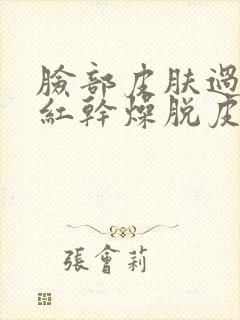 臉部皮肤過
紅幹燥脱皮
張會莉